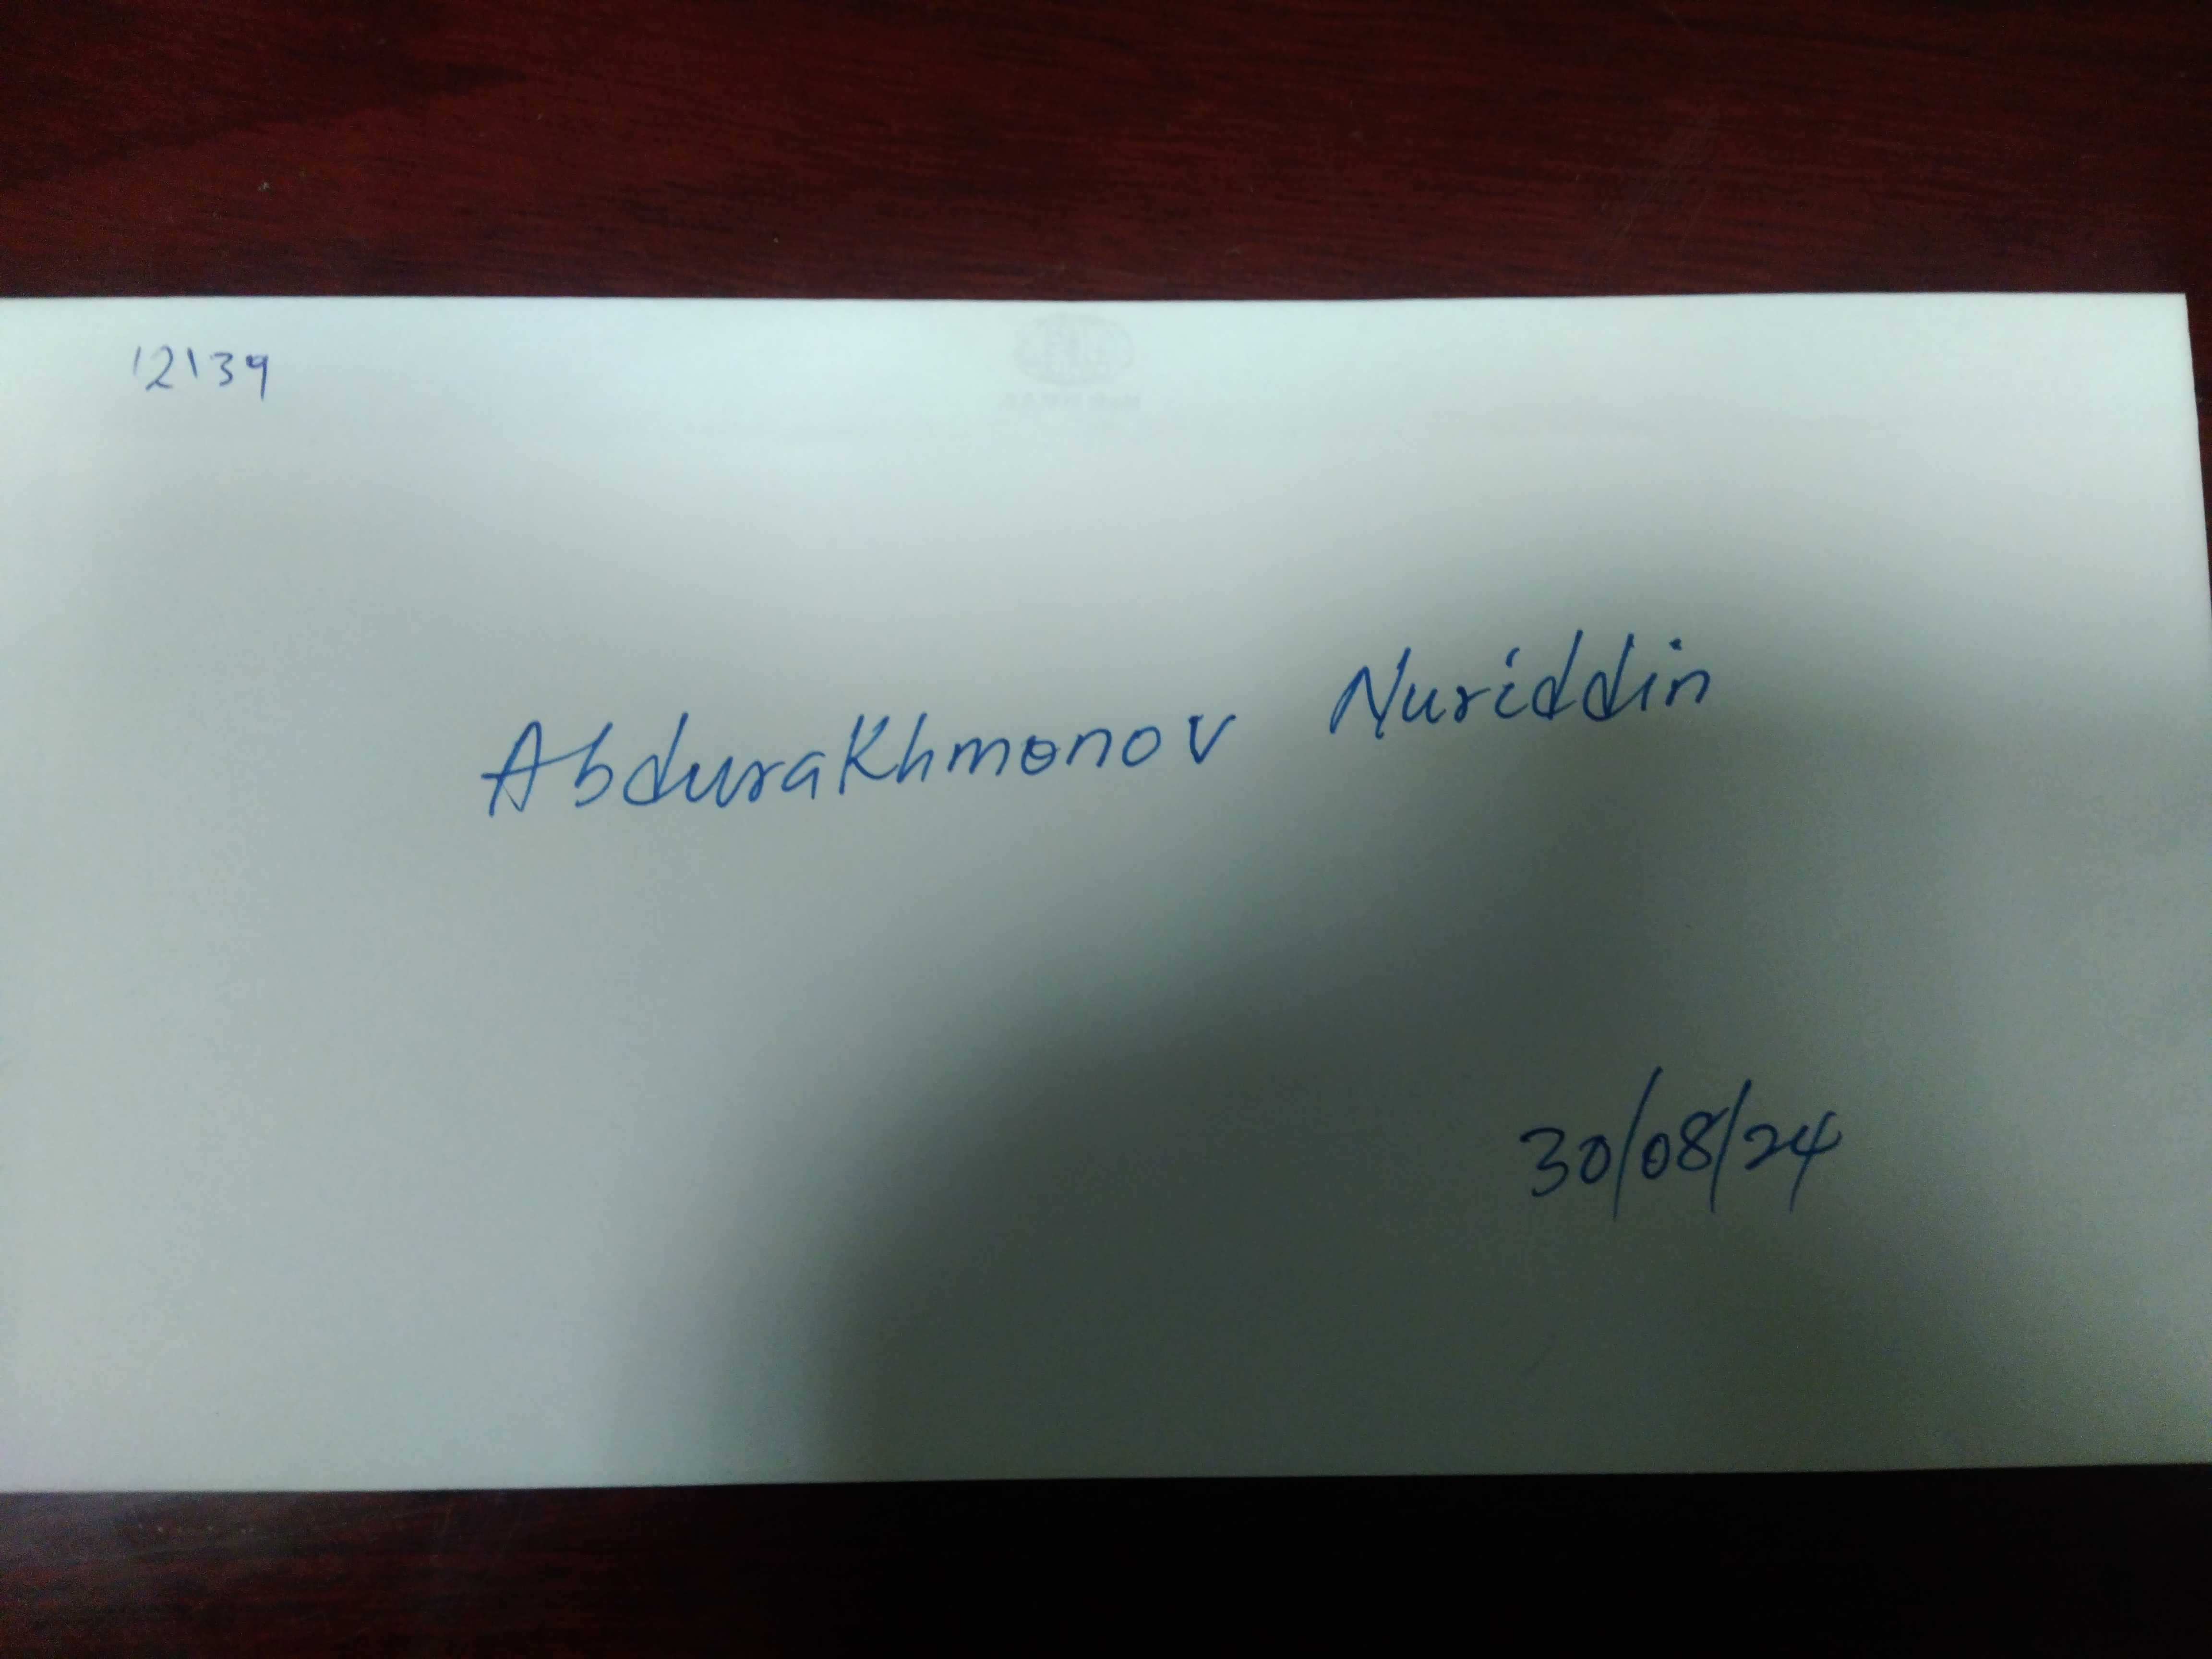 12139
Abdurakhmonov Nuriddin
30/08/24